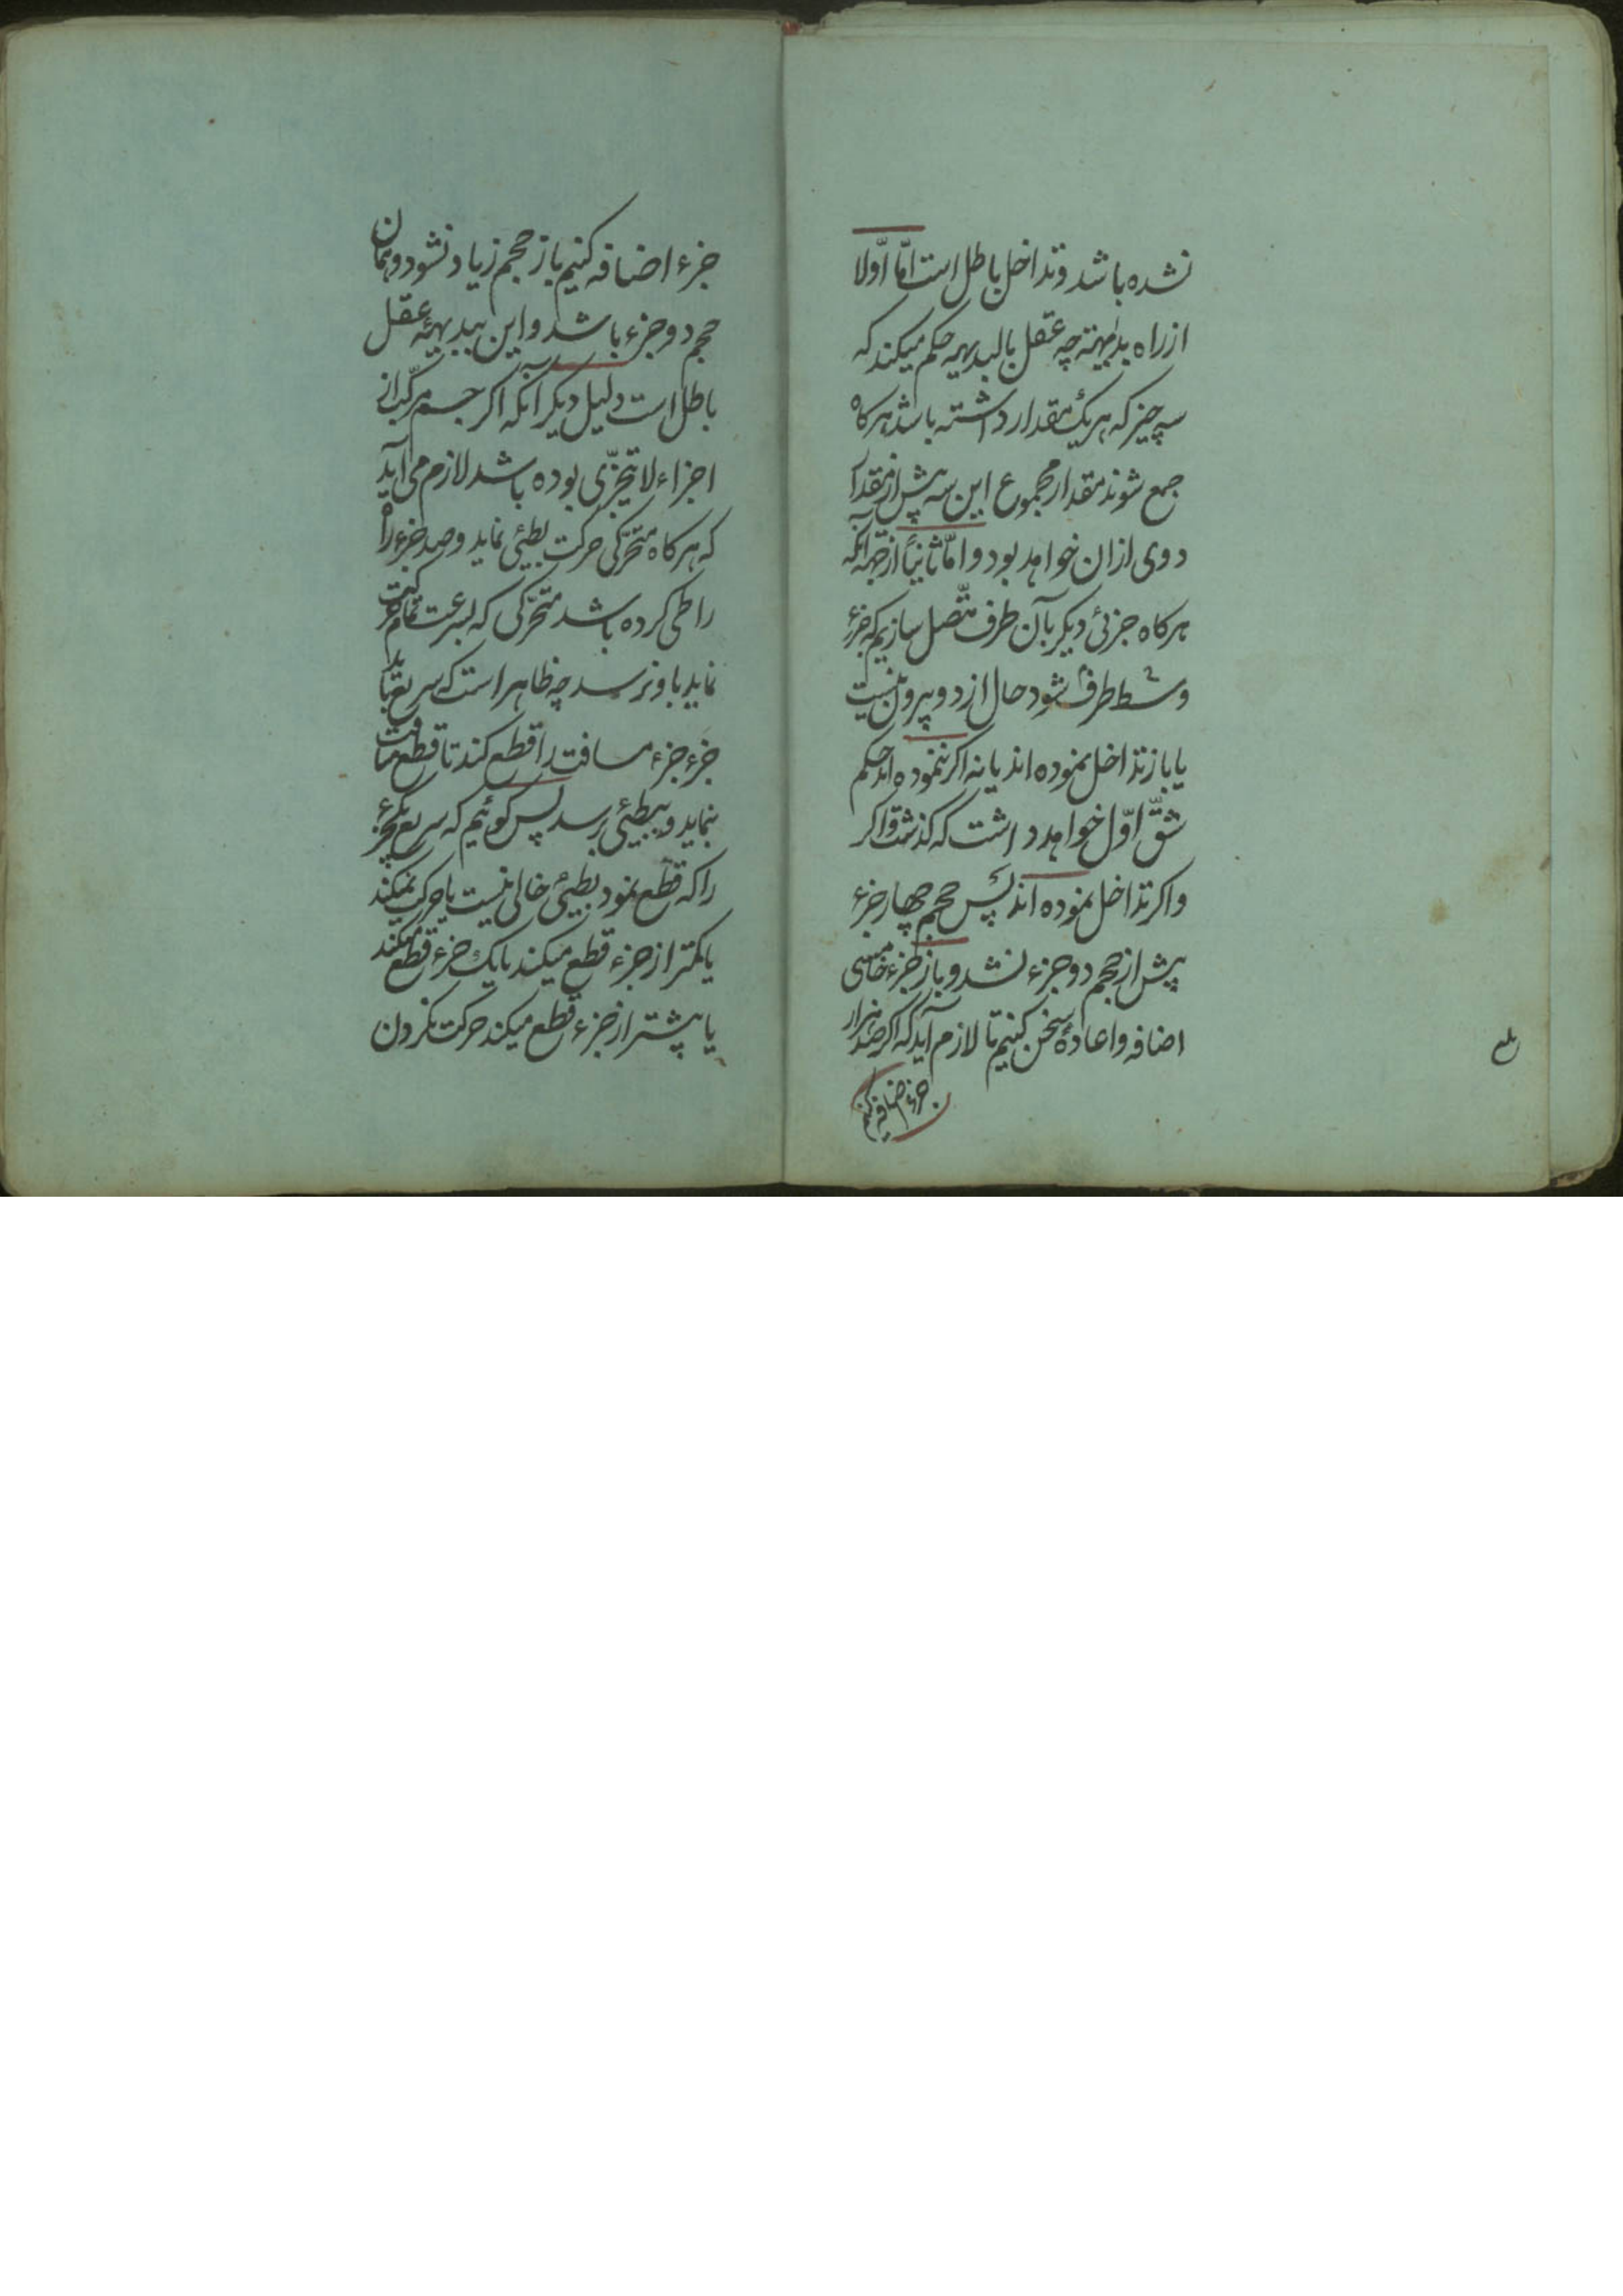 نشده باشد و تداخل باطل است امّا اوّلا
از راه بدیهیّة چه عقل بالبدیهه حکم میکند که
سه چیز که هر یک مقدار داشته باشد هرکاه
جمع شوند مقدار مجموع این سه پیش از مقدار
دوی ازان خواهد بود و امّا ثانیاً از جهة آنکه
هرکاه جزئی دیکر بآن طرف متّصل سازیم که جزء
وسط طرف شود حال از دو بیرون نیست
یا باز تداخل نموده اند یا نه اکر ننموده اند حکم
شقّ اوّل خواهد داشت که کذشت و اکر
واکر تداخل نموده اند پس حجم چهار جزء
پیش از حجم دو جزء نشد و باز جزء خامسی
اضافه و اعادهٔ سخن کنیم تا لازم آید که اکر صد هزار
جزء اضافه کنیم
جزء اضافه کنیم باز حجم زیاد نشود و همان
حجم دو جزء باشد و این ببدیهیّهٔ عقل
باطل است دلیل دیکر آنکه اکر جسم مرکّب از
اجزاء لا تیجزّی بوده باشد لازم می آید
که هرکاه متحرّکی حرکت بطیئی نماید و صد جزء راه
را طی کرده باشد متحرّکی که بسرعت تمام حرکت
نماید باو نرسد چه ظاهر است که سریع باید
جزء جزء مسافت را قطع کند تا قطع مسافت
بنماید و ببطیئی برسد پس کوئیم که سریع یکجزء
را که قطع نمود بطیئی خالی نیست یا حرکت نمیکند
یا کمتر از جزء قطع میکند یا یک جزء قطع میکند
یا پیشتر از جزء قطع میکند حرکت نکردن